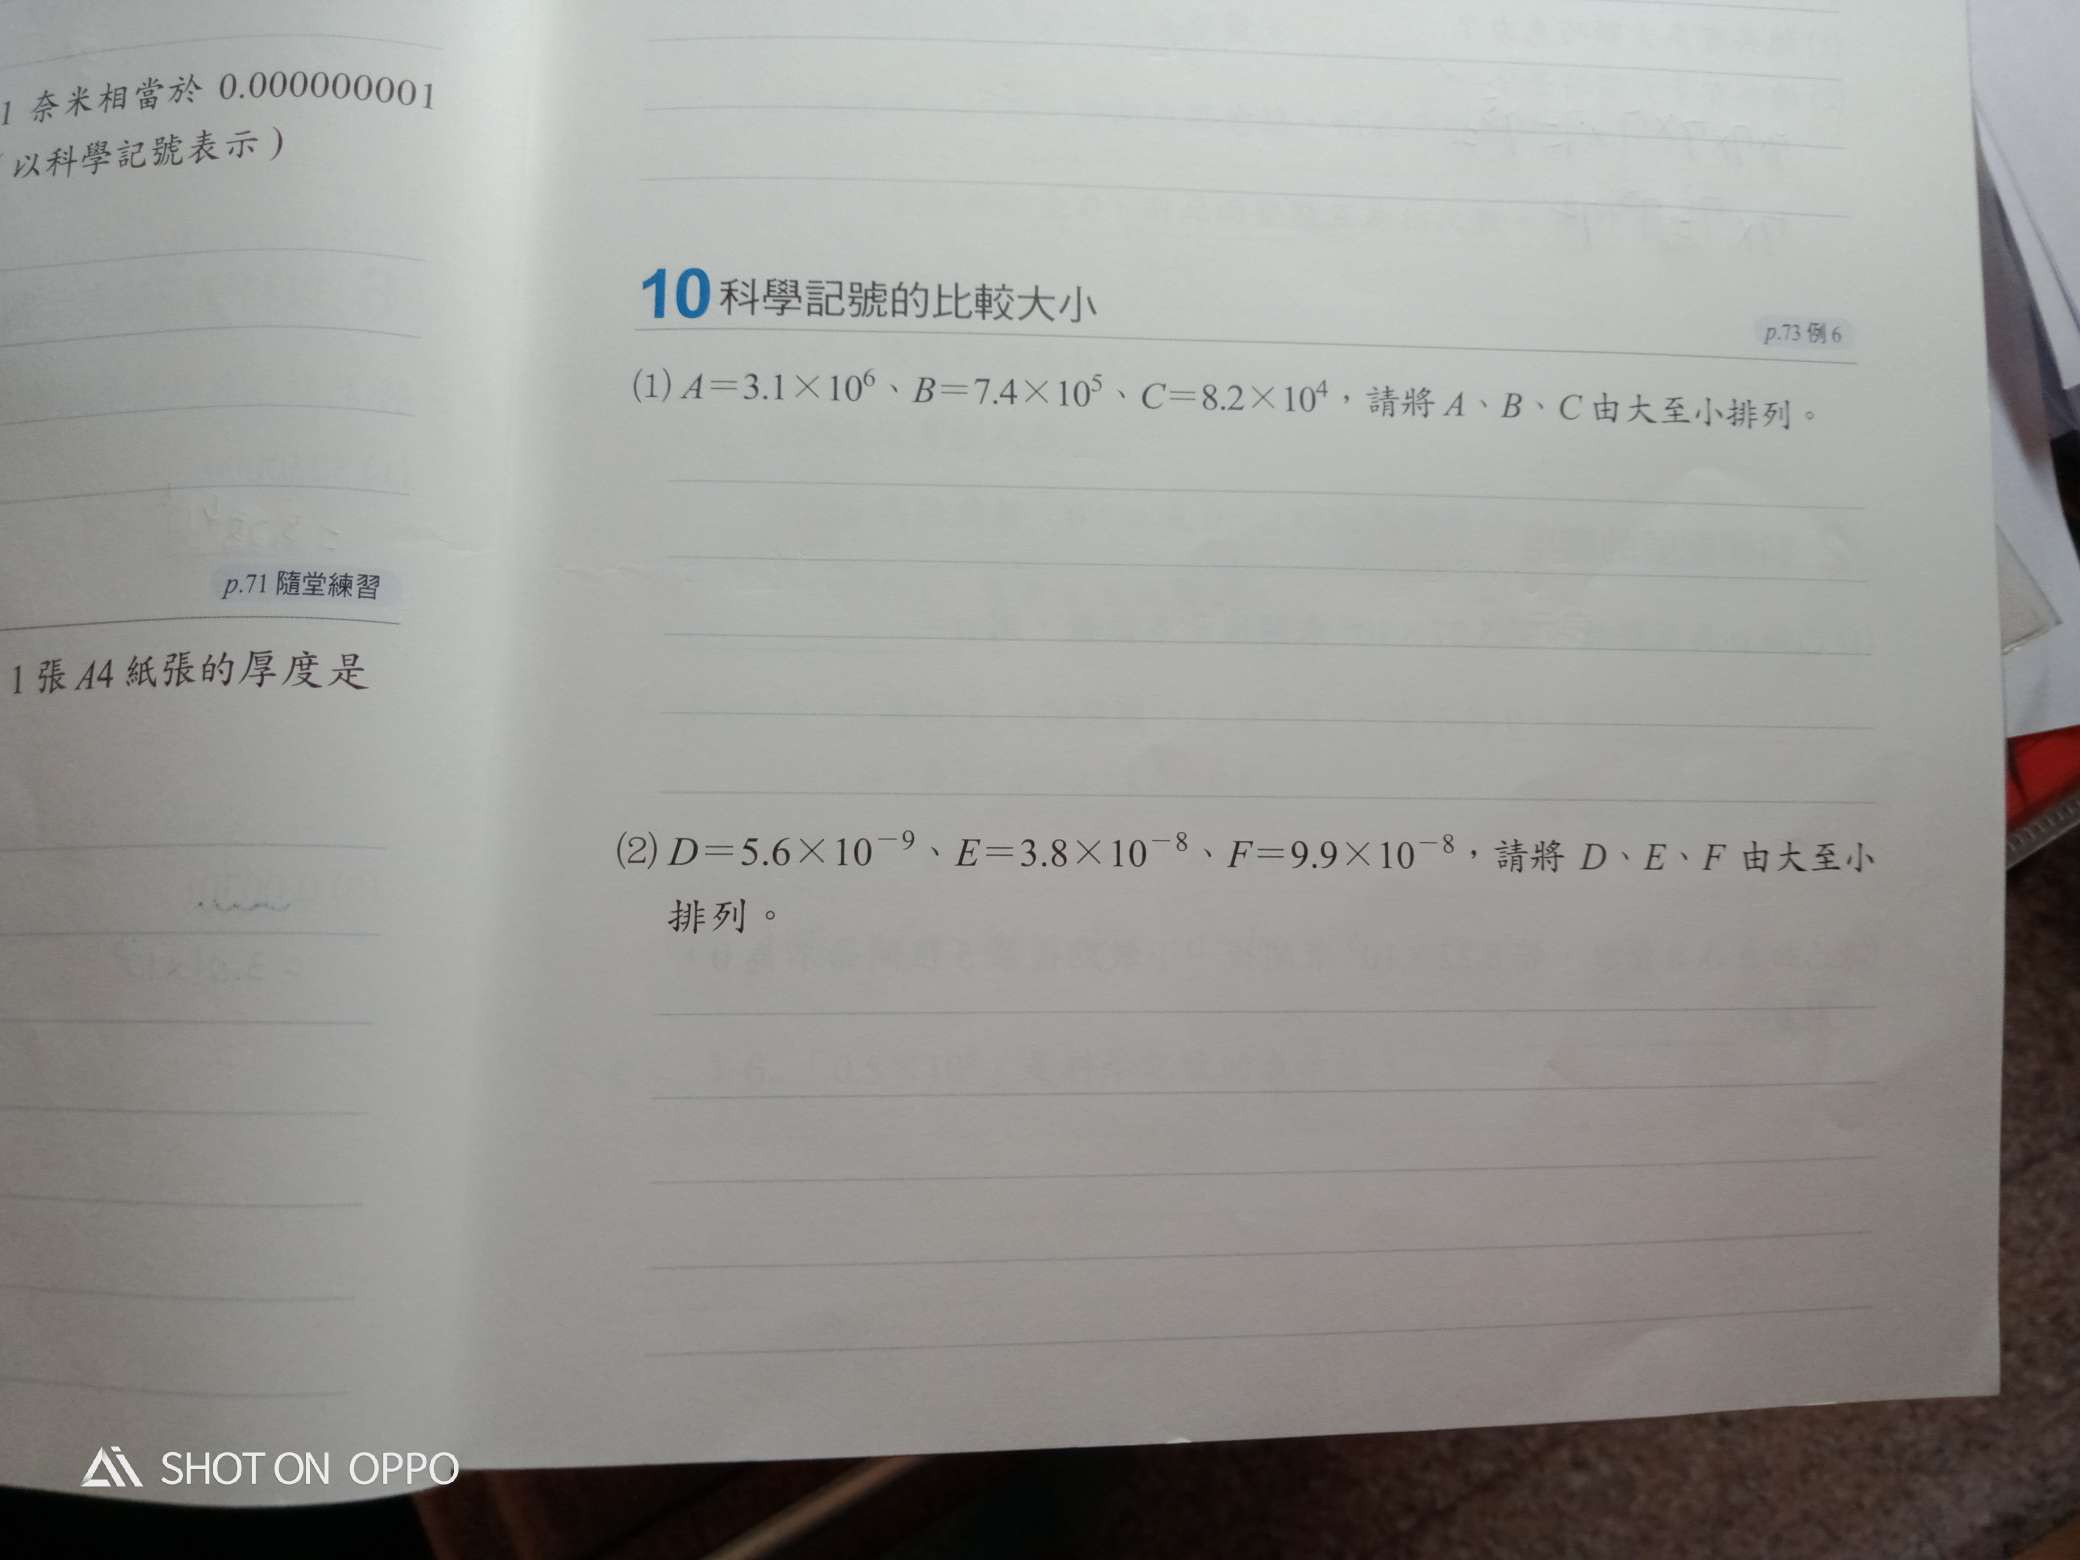 1 奈米相當於 0.000000001
(以科學記號表示)
p.71 隨堂練習
1 張 A4 紙張的厚度是
10 科學記號的比較大小
p.73 例 6
(1) A=3.1×10⁶、B=7.4×10⁵、C=8.2×10⁴,請將 A、B、C 由大至小排列。
(2) D=5.6×10⁻⁹、E=3.8×10⁻⁸、F=9.9×10⁻⁸,請將 D、E、F 由大至小
排列。
SHOT ON OPPO